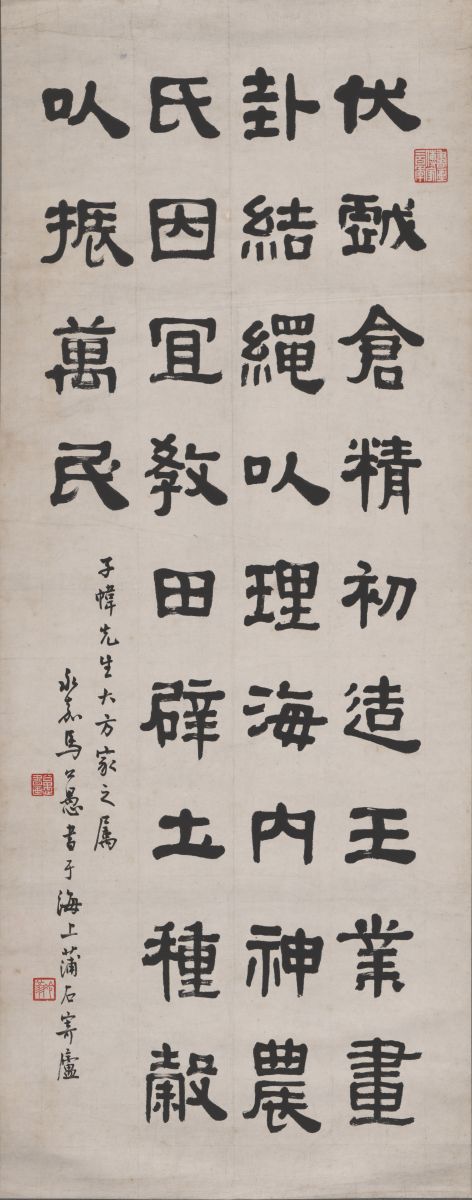 伏戲倉精初造王業畫
卦結繩以理海內神農
氏因宜教田辟土種穀
以振萬民
子幃先生大方家之属
永嘉馬公愚書于海上蒲石寄廬